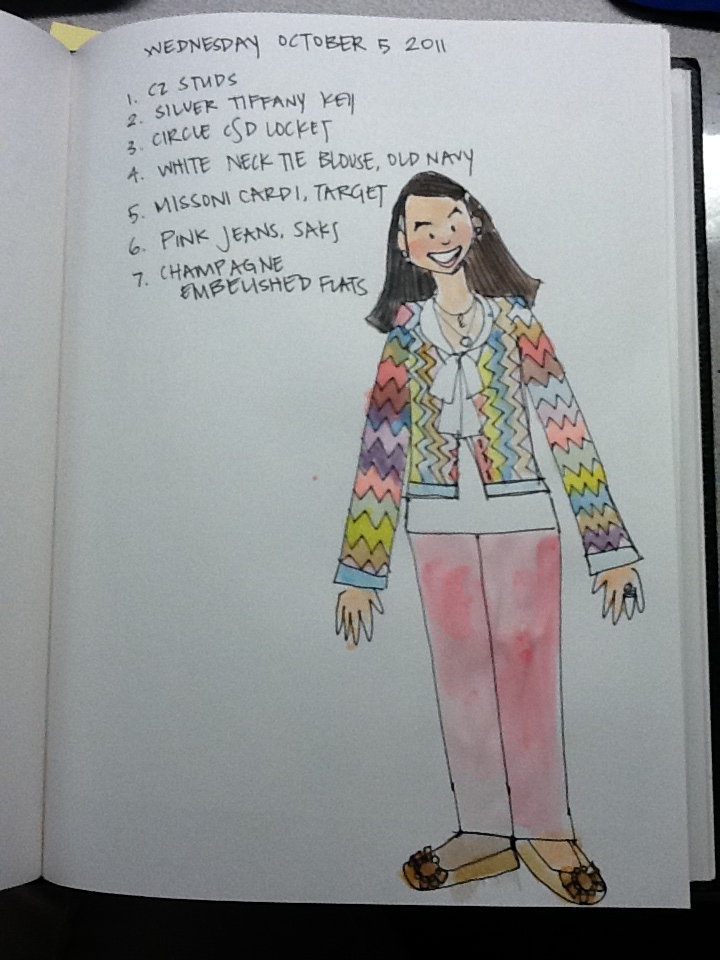 WEDNESDAY OCTOBER 5 2011
1. CZ STUDS
2. SILVER TIFFANY KEY
3. CIRCLE CSD LOCKET
4. WHITE NECK TIE BLOUSE, OLD NAVY
5. MISSONI CARDI, TARGET
6. PINK JEANS, SAKS
7. CHAMPAGNE
EMBELISHED FLATS